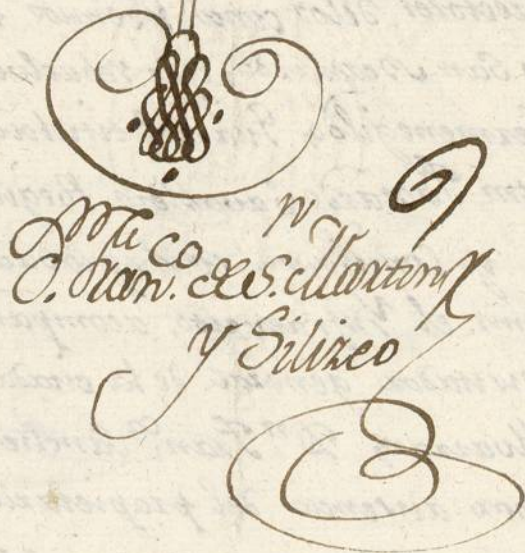 Fran.co de S.n Martin
y Silizeo